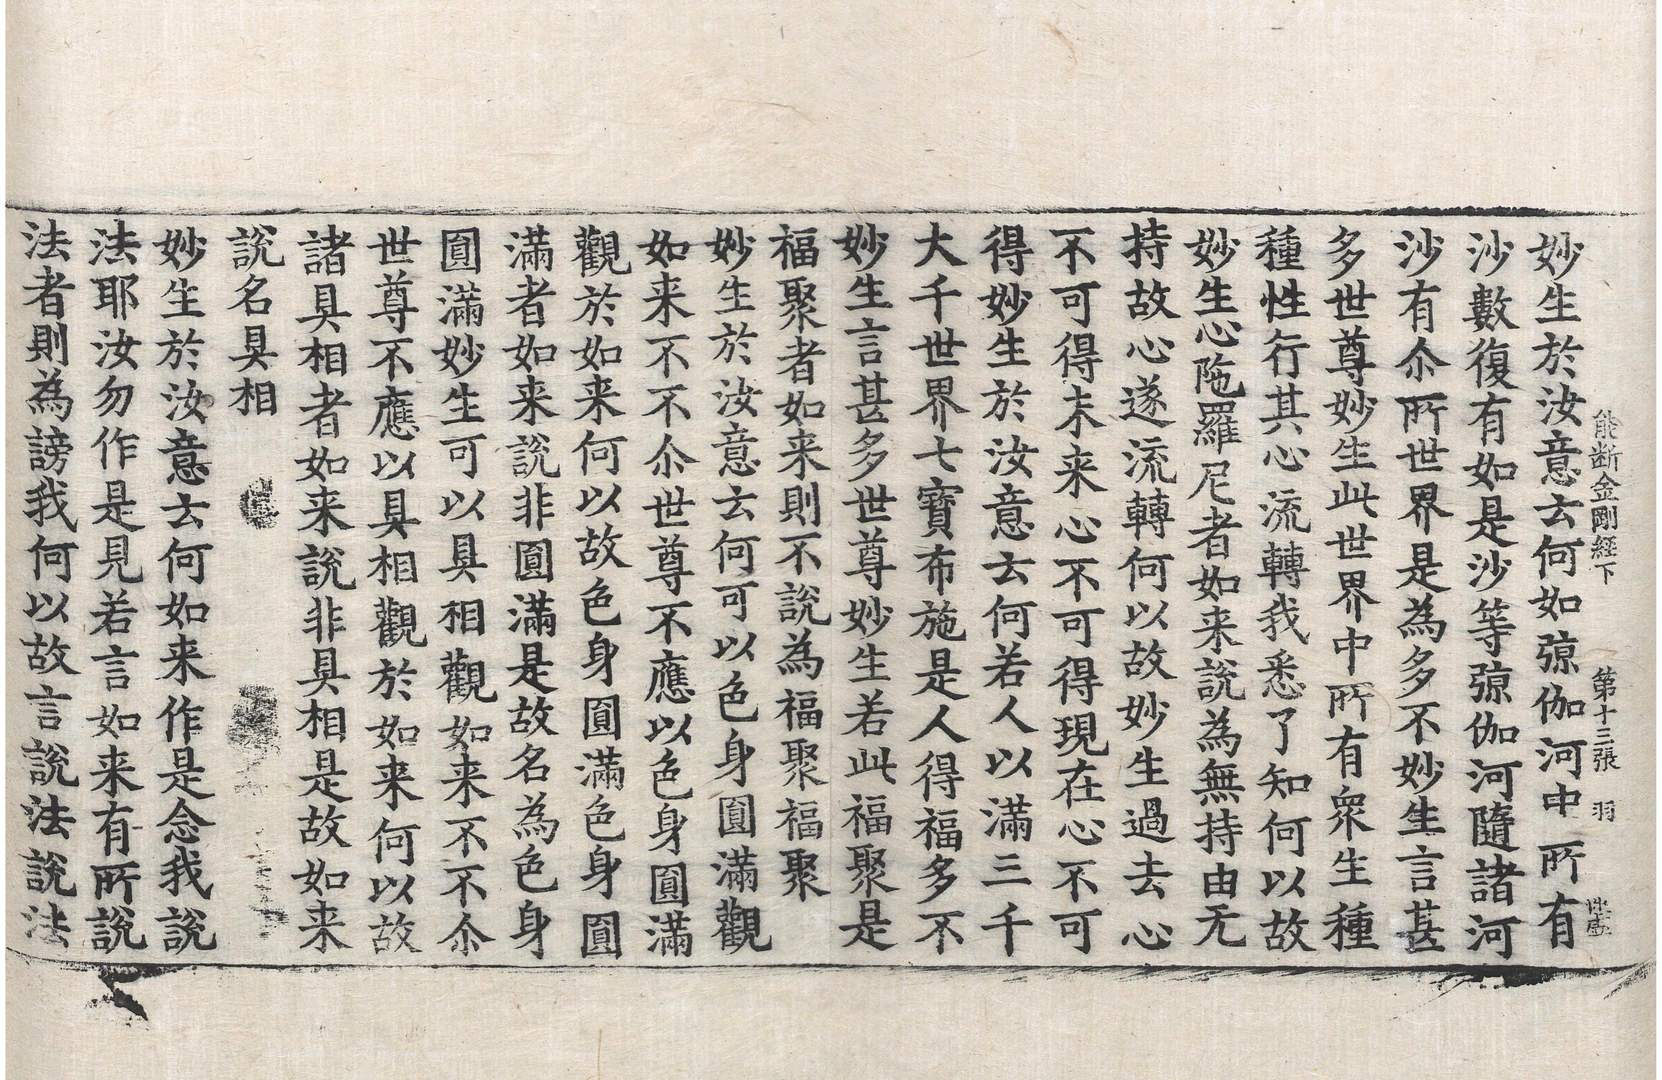 能断金剛經下 第十三張 羽
妙生於汝意云何如弶伽河中所有
沙數復有如是沙等弶伽河隨諸河
沙有尒所世界是為多不妙生言甚
多世尊妙生此世界中所有衆生種
種性行其心流轉我悉了知何以故
妙生心陁羅尼者如来說為無持由无
持故心遂流轉何以故妙生過去心
不可得未来心不可得現在心不可
得妙生於汝意云何若人以滿三千
大千世界七寶布施是人得福多不
妙生言甚多世尊妙生若此福聚是
福聚者如来則不說為福聚福聚
妙生於汝意云何可以色身圓滿觀
如来不不尒世尊不應以色身圓滿
觀於如来何以故色身圓滿色身圓
滿者如来說非圓滿是故名為色身
圓滿妙生可以具相觀如来不不尒
世尊不應以具相觀於如来何以故
諸具相者如来說非具相是故如来
說名具相
妙生於汝意云何如来作是念我說
法耶汝勿作是見若言如来有所說
法者則為謗我何以故言說法說法